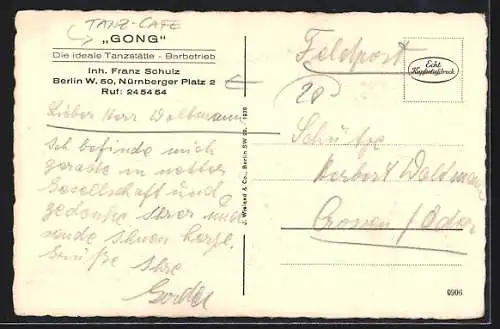 TANZ-CAFE
„GONG“
Die ideale Tanzstätte - Barbetrieb
Inh. Franz Schulz
Berlin W. 50, Nürnberger Platz 2
Ruf: 24 54 54
Lieber Herr Waltmann
Ich befinde mich
gerade in netter
Gesellschaft und
gedenke Ihrer und
sende Ihnen herzl.
Grüße Ihre
J. Wieland & Co., Berlin SW 29. 1938
Feldpost
20
Echt
Kupfertiefdruck
Schütze
Herbert Waltmann
Crossen / Oder
0906